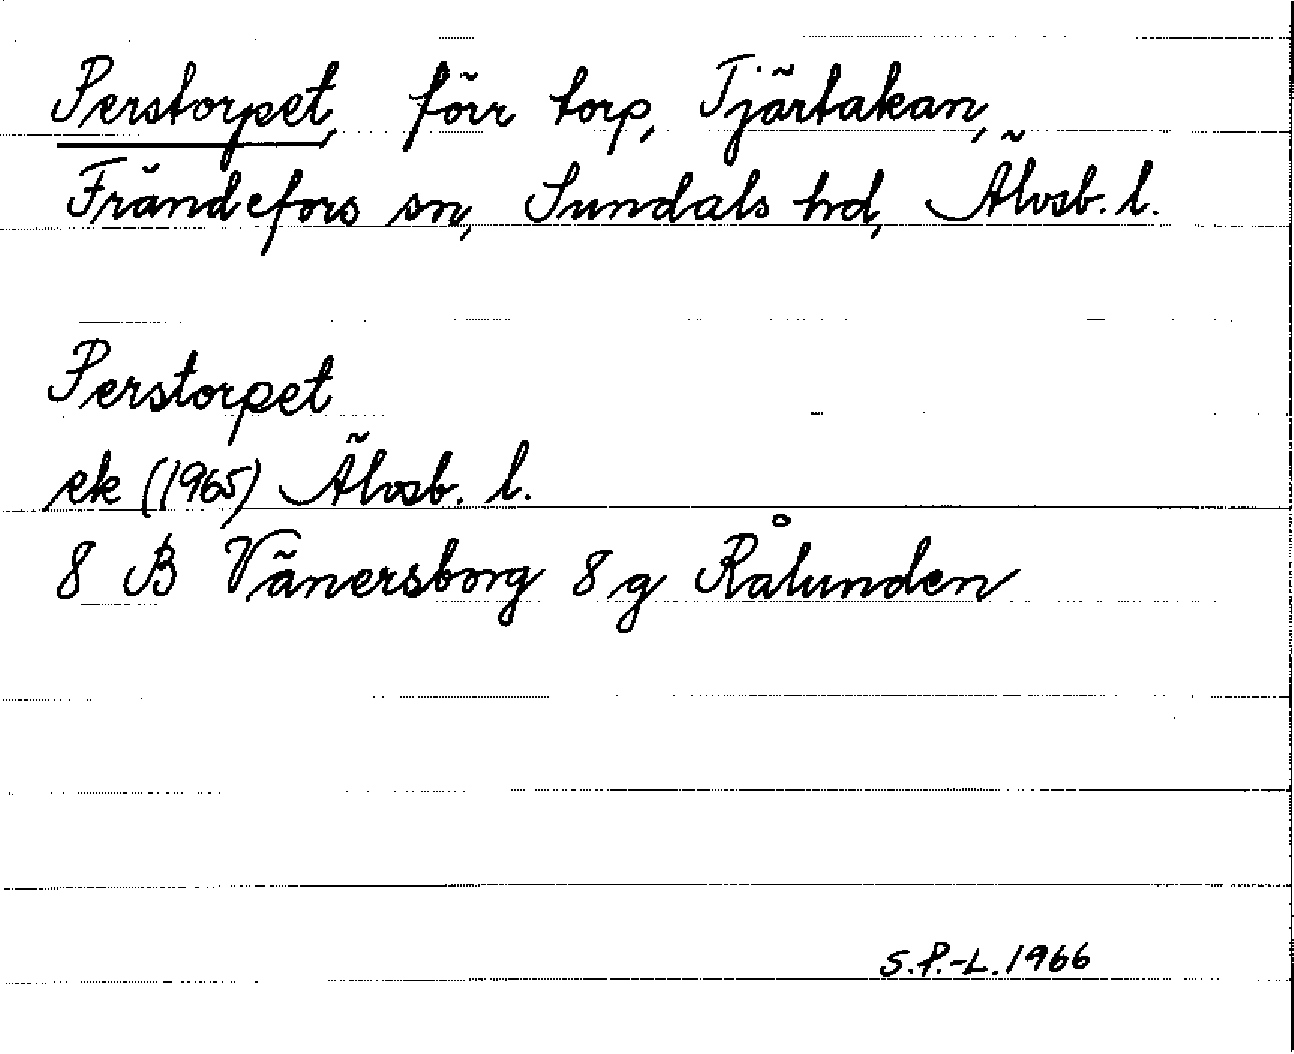 Perstorpet, förr torp, Tjärtakan,
Frändefors sn, Sundals hd, Älvsb. l.
Perstorpet
ek (1965) Älvsb. l.
8 B Vänersborg 8 g Rålunden
S.P.-L. 1966